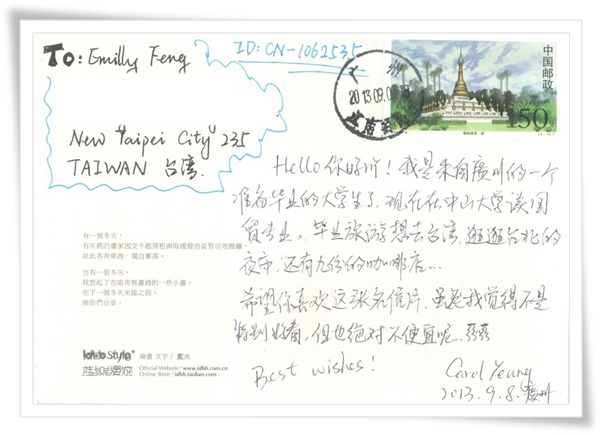 To: Emilly Feng
ID: CN-1062535
New Taipei City 235
TAIWAN 台湾.
州
2013.09.0
中国邮政
150
Hello 你好吖！我是来自廣州的一个
准备毕业的大学生了，现在在中山大学读国
贸专业。毕业旅游想去台湾，逛逛台北的
夜市，还有九份的咖啡店...
希望你喜欢这张名信片，虽然我觉得不是
特别好看，但也绝对不便宜呢...
Best wishes! Carol Yeung
2013.9.8. 廣州
有一個冬天，
有年輕的畫家因交不起房租與取暖費而被迫
從此各奔東西，獨自
也有一個冬天，
我想起了在宿夜裡畫過的一些小畫，
在下一個冬天來臨之前，
與你們分享。
idbb Style
繪畫 文字 / 藍火
Official Website / www.idbb.com.cn
Online Store / idbb.taobao.com